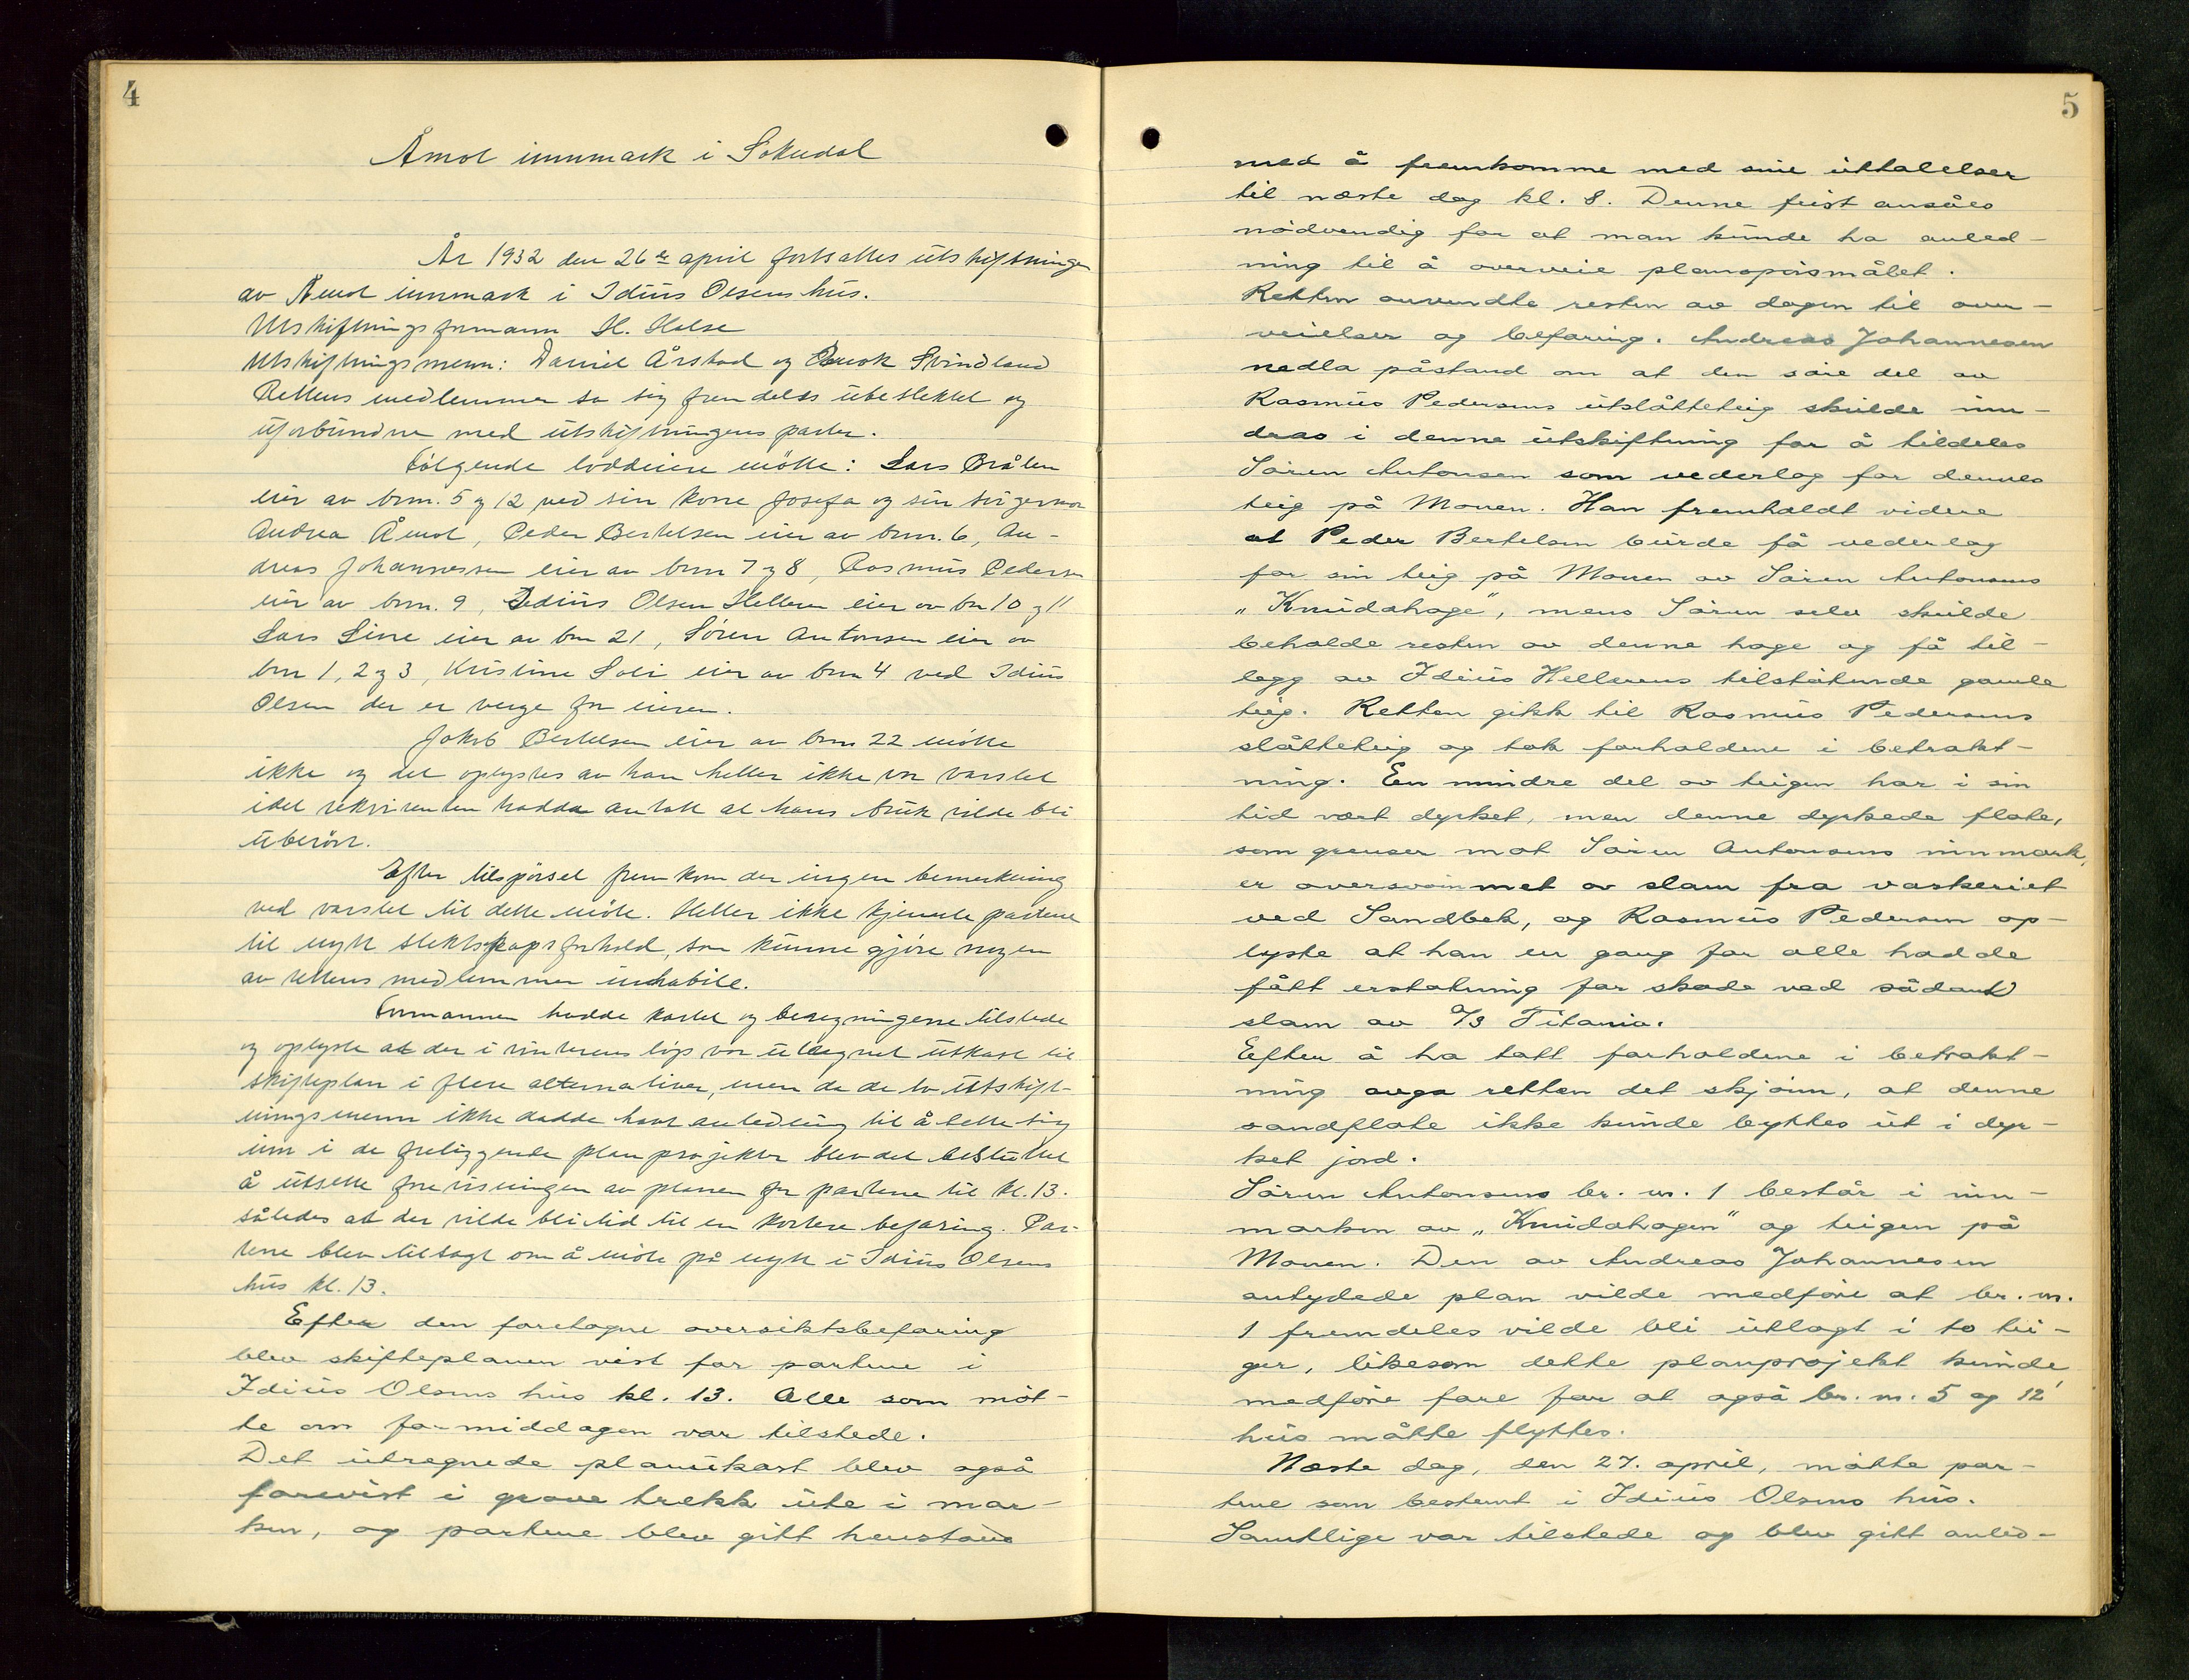 4
Åmot innmark i Sokndal
År 1932 den 26de april fortsattes utskiftningen
av Åmot innmark i Idius Olsens hus.
Utskiftningsformann H. Helse
Utskiftningsmenn: Daniel Årstad og Enok Svindland
Rettens medlemmer sa sig fremdeles ubeslektet og
uforbundne med utskiftningens parter.
Følgende loddeiere møtte: Lars Bråten
eier av brnr. 5 og 12 ved sin kone Josefa og sin svigermor
Andrea Åmot, Peder Bertelsen eier av brnr. 6, An-
dreas Johannessen eier av brnr 7 og 8, Rasmus Pedersen
eier av brnr. 9, Idius Olsen Helleren eier av bnr 10 og 11
Lars Line eier av bnr 21, Sören Antonsen eier av
bnr 1, 2 og 3, Kristine Soli eier av bnr 4 ved Idius
Olsen der er verge for eieren.
Jakob Bertelsen eier av bnr 22 møtte
ikke og det oplystes av han heller ikke var varslet
idet rekvirenten hadde antatt at hans bruk vilde bli
uberørt.
Efter tilspørsel fremkom der ingen bemerkning
ved varslet til dette møte. Heller ikke kjente partene
til nytt slektskapsforhold, som kunne gjöre nogen
av rettens medlemmer inhabile.
Formannen hadde kartet og beregningene tilstede
og oplyste at der i vinterens löp var utregnet utkast til
skifteplan i flere alternativer, men da de to utskift-
ningsmenn ikke hadde havt anledning til å sette sig
inn i de foreliggende planprosjekter blev det besluttet
å utsette forevisningen av planen for partene til kl. 13.
således at der vilde bli tid til en kortere befaring. Par-
tene blev tilsagt om å møte på nytt i Idius Olsens
hus kl. 13.
Efter den foretagne oversiktsbefaring
blev skifteplanen vist for partene i
Idius Olsens hus kl. 13. Alle som möt-
te om formiddagen var tilstede.
Det utregnede planutkast blev også
forevist i grove trekk ute i mar-
ken, og partene blev gitt henstand
5
med å fremkomme med sine uttalelser
til næste dag kl. 8. Denne frist ansåes
nödvendig for at man kunde ha anled-
ning til å overveie planspörsmålet.
Retten anvendte resten av dagen til over-
veielser og befaring. Andreas Johannesen
nedla påstand om at den söre del av
Rasmus Pedersens utslåtteteig skulde inn-
dras i denne utskiftning for å tildeles
Sören Antonsen som vederlag for dennes
teig på Monen. Han fremholdt videre
at Peder Bertelsen burde få vederlag
for sin teig på Monen av Sören Antonsens
„Knudahage", mens Sören selv skulde
beholde resten av denne hage og få til-
legg av Idius Hellerens tilstötende gamle
teig. Retten gikk til Rasmus Pedersens
slåtteteig og tok forholdene i betrakt-
ning. En mindre del av teigen har i sin
tid vært dyrket, men denne dyrkede flate,
som grenser mot Sören Antonsens innmark,
er oversvömmet av slam fra vaskeriet
ved Sandbek, og Rasmus Pedersen op-
lyste at han en gang for alle hadde
fått erstatning for skade ved sådant
slam av A/S Titania.
Efter å ha tatt forholdene i betrakt-
ning avga retten det skjönn, at denne
sandflate ikke kunde byttes ut i dyr-
ket jord.
Sören Antonsens br. nr. 1 består i inn-
marken av „Knudahagen" og teigen på
Monen. Den av Andreas Johannesen
antydede plan vilde medföre at br. nr.
1 fremdeles vilde bli utlagt i to tei-
ger, likesom dette planprosjekt kunde
medföre fare for at også br. nr. 5 og 12'
hus måtte flyttes.
Næste dag, den 27. april, mötte par-
tene som bestemt i Idius Olsens hus.
Samtlige var tilstede og blev gitt anled-